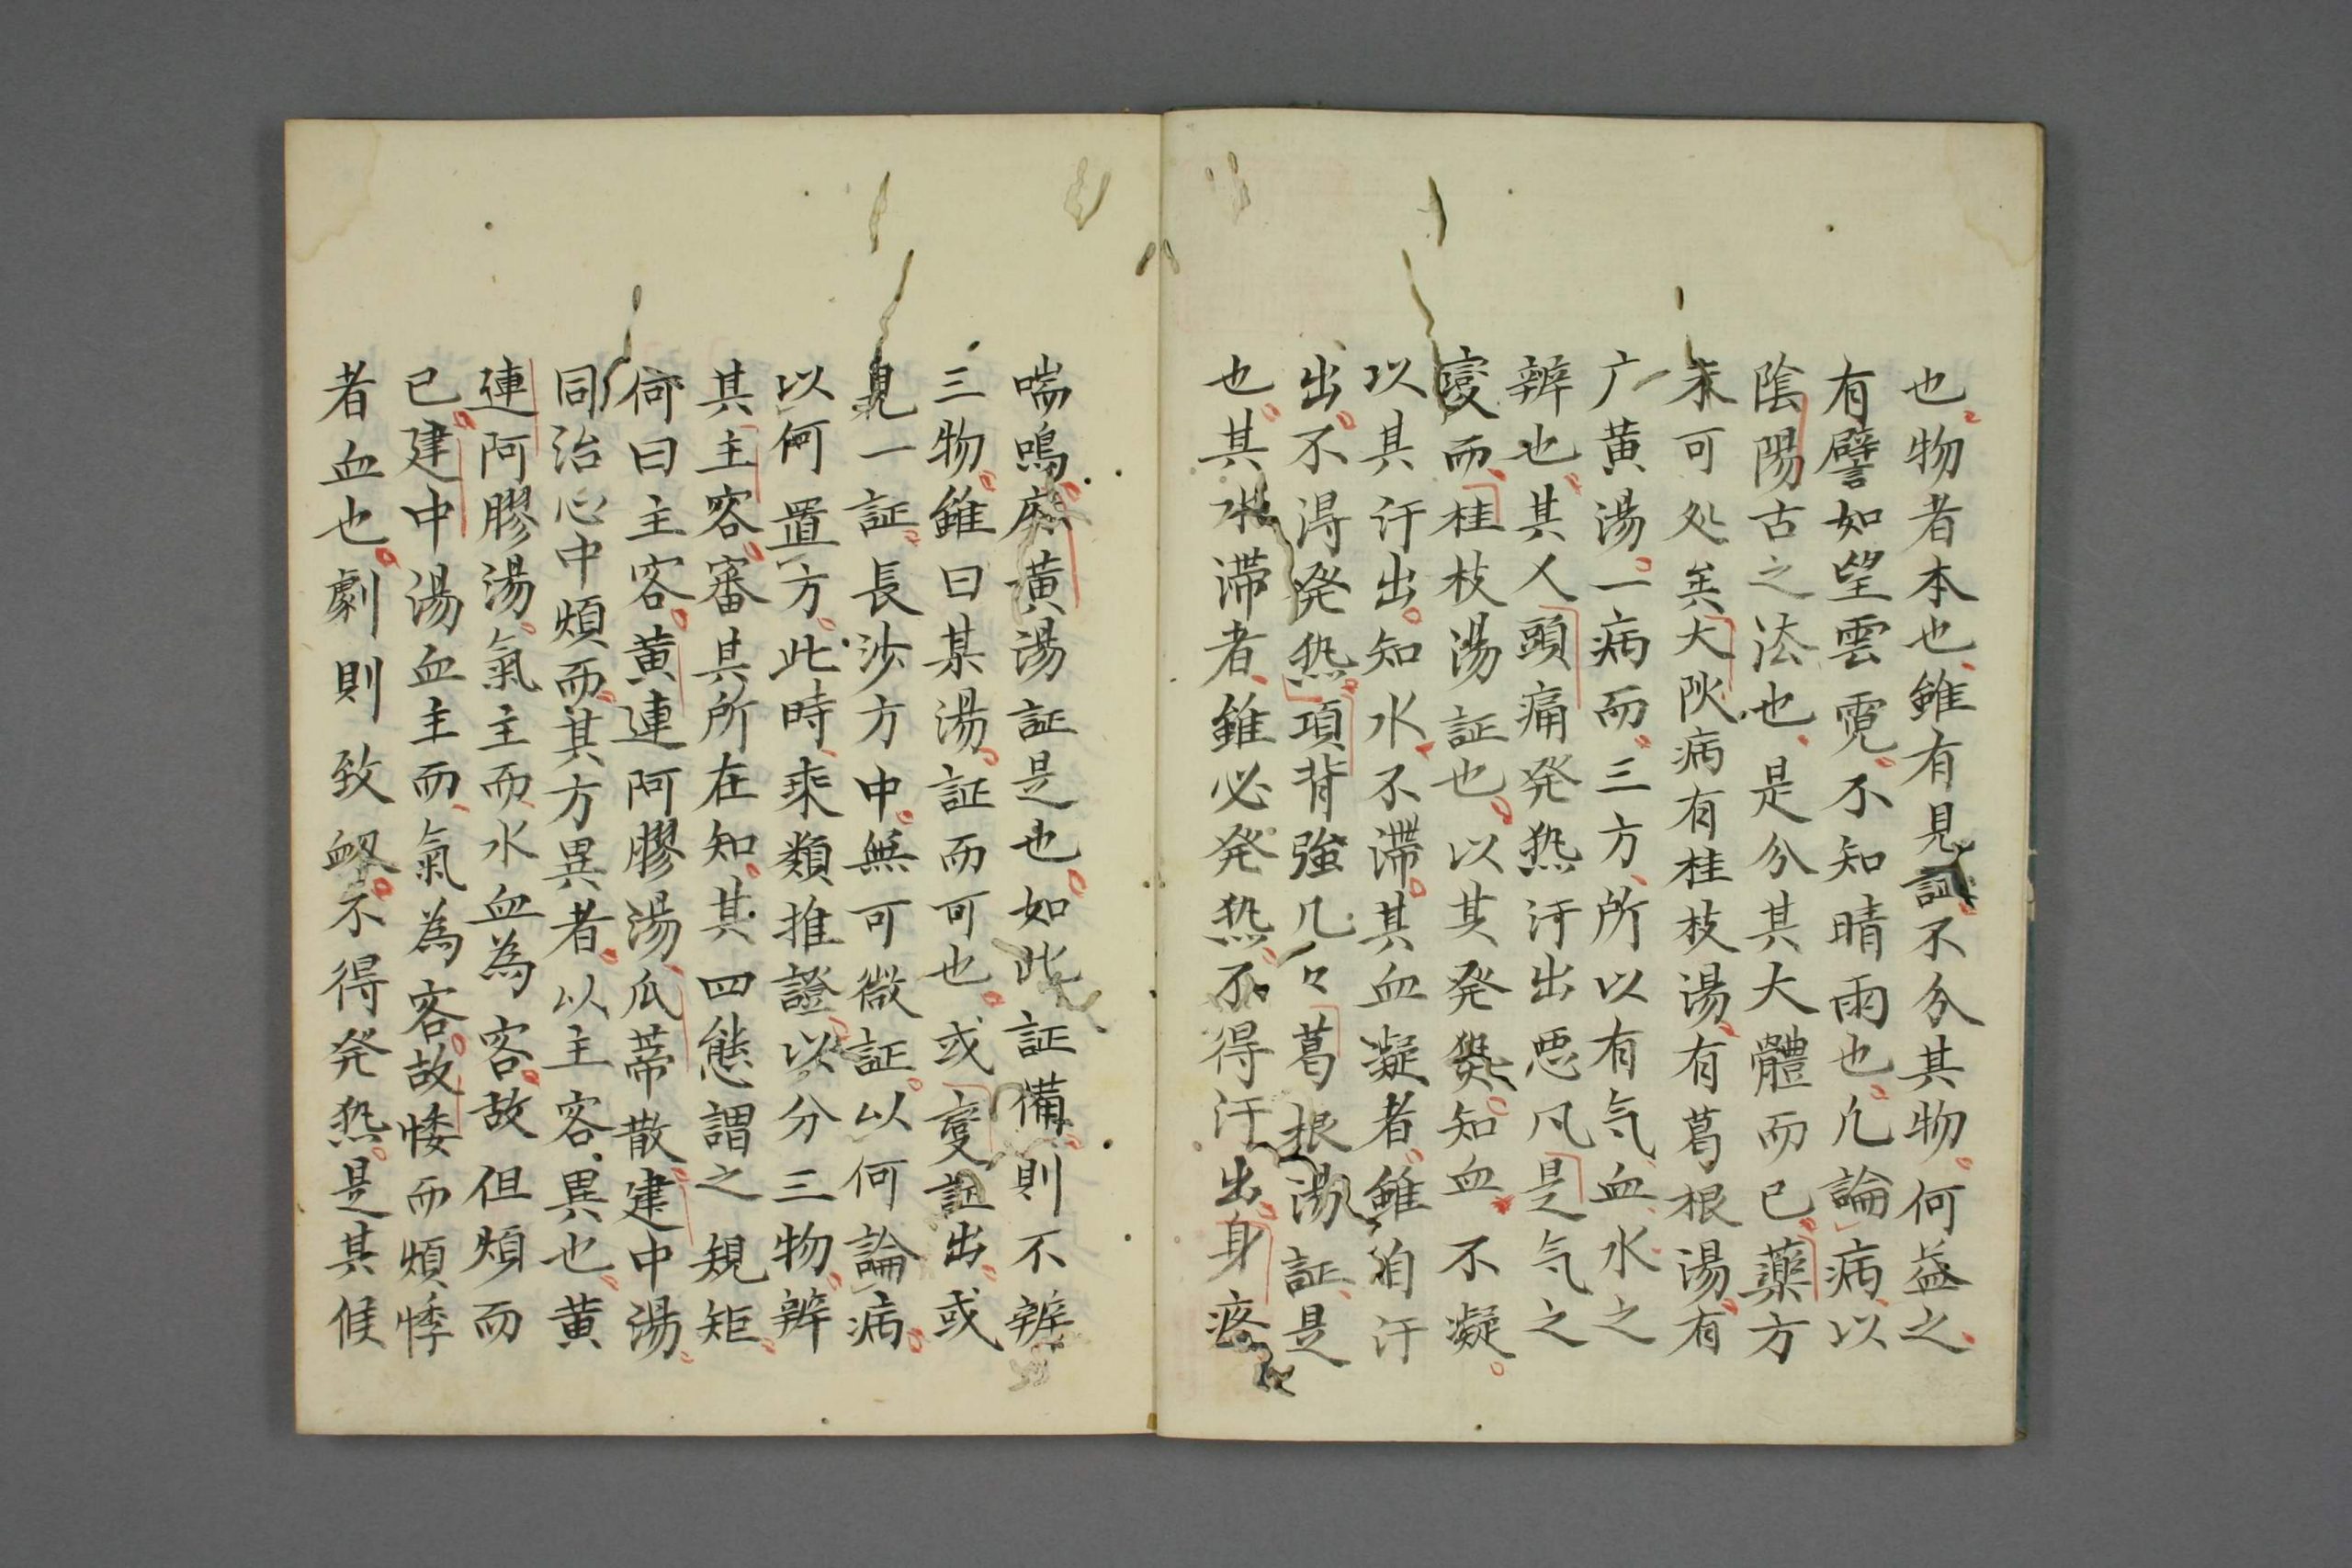 也物者本也雖有見証不分其物何益之
有譬如望雲霓不知晴雨也凢論病以
陰陽古之法也是分其大體而已藥方
未可処矣大陽病有桂枝湯有葛根湯有
广黄湯一病而三方所以有気血水之
辨也其人頭痛発熱汗出悪凨是気之
変而桂枝湯証也以其発熱知血不凝
以其汗出知水不滞其血凝者雖自汗
出不得発熱項背強几々葛根湯証是
也其水滞者雖必発熱不得汗出身疼
喘鳴麻黄湯証是也如此証備則不辨
三物雖曰某湯証而可也或変証出或
見一証長沙方中無可徴証以何論病
以何置方此時乘類推證以分三物辨
其主客審其所在知其四態謂之規矩
何曰主客黄連阿膠湯瓜蒂散建中湯
同治心中煩而其方異者以主客異也黄
連阿膠湯氣主而水血為客故但煩而
已建中湯血主而氣為客故悸而煩悸
者血也劇則致衂不得発熱是其候